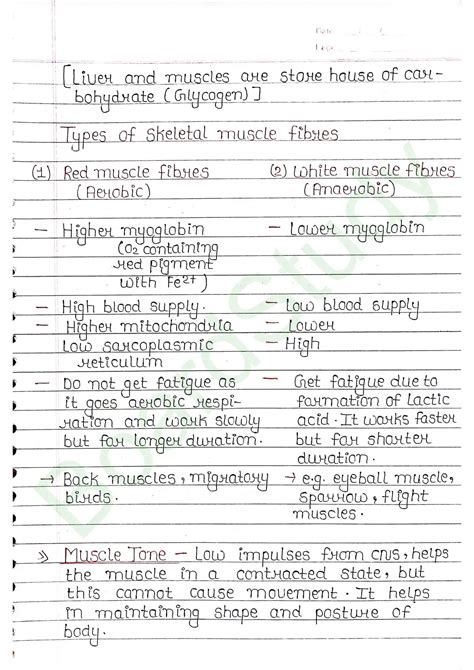 Date / /
[Liver and muscles are store house of car-
bohydrate (Glycogen)]
Types of skeletal muscle fibres
(1) Red muscle fibres (2) White muscle fibres
(Aerobic) (Anaerobic)
— Higher myoglobin — Lower myoglobin
(O2 containing
red pigment
with Fe2+)
— High blood supply. — Low blood supply
— Higher mitochondria — Lower
Low sarcoplasmic — High
reticulum
— Do not get fatigue as — Get fatigue due to
it goes aerobic respi- formation of lactic
ration and work slowly acid. It works faster
but for longer duration. but for shorter
duration.
→ Back muscles, migratory → e.g. eyeball muscle,
birds. sparrow, flight
muscles.
» Muscle Tone – Low impulses from CNS, helps
the muscle in a contracted state, but
this cannot cause movement. It helps
in maintaining shape and posture of
body.